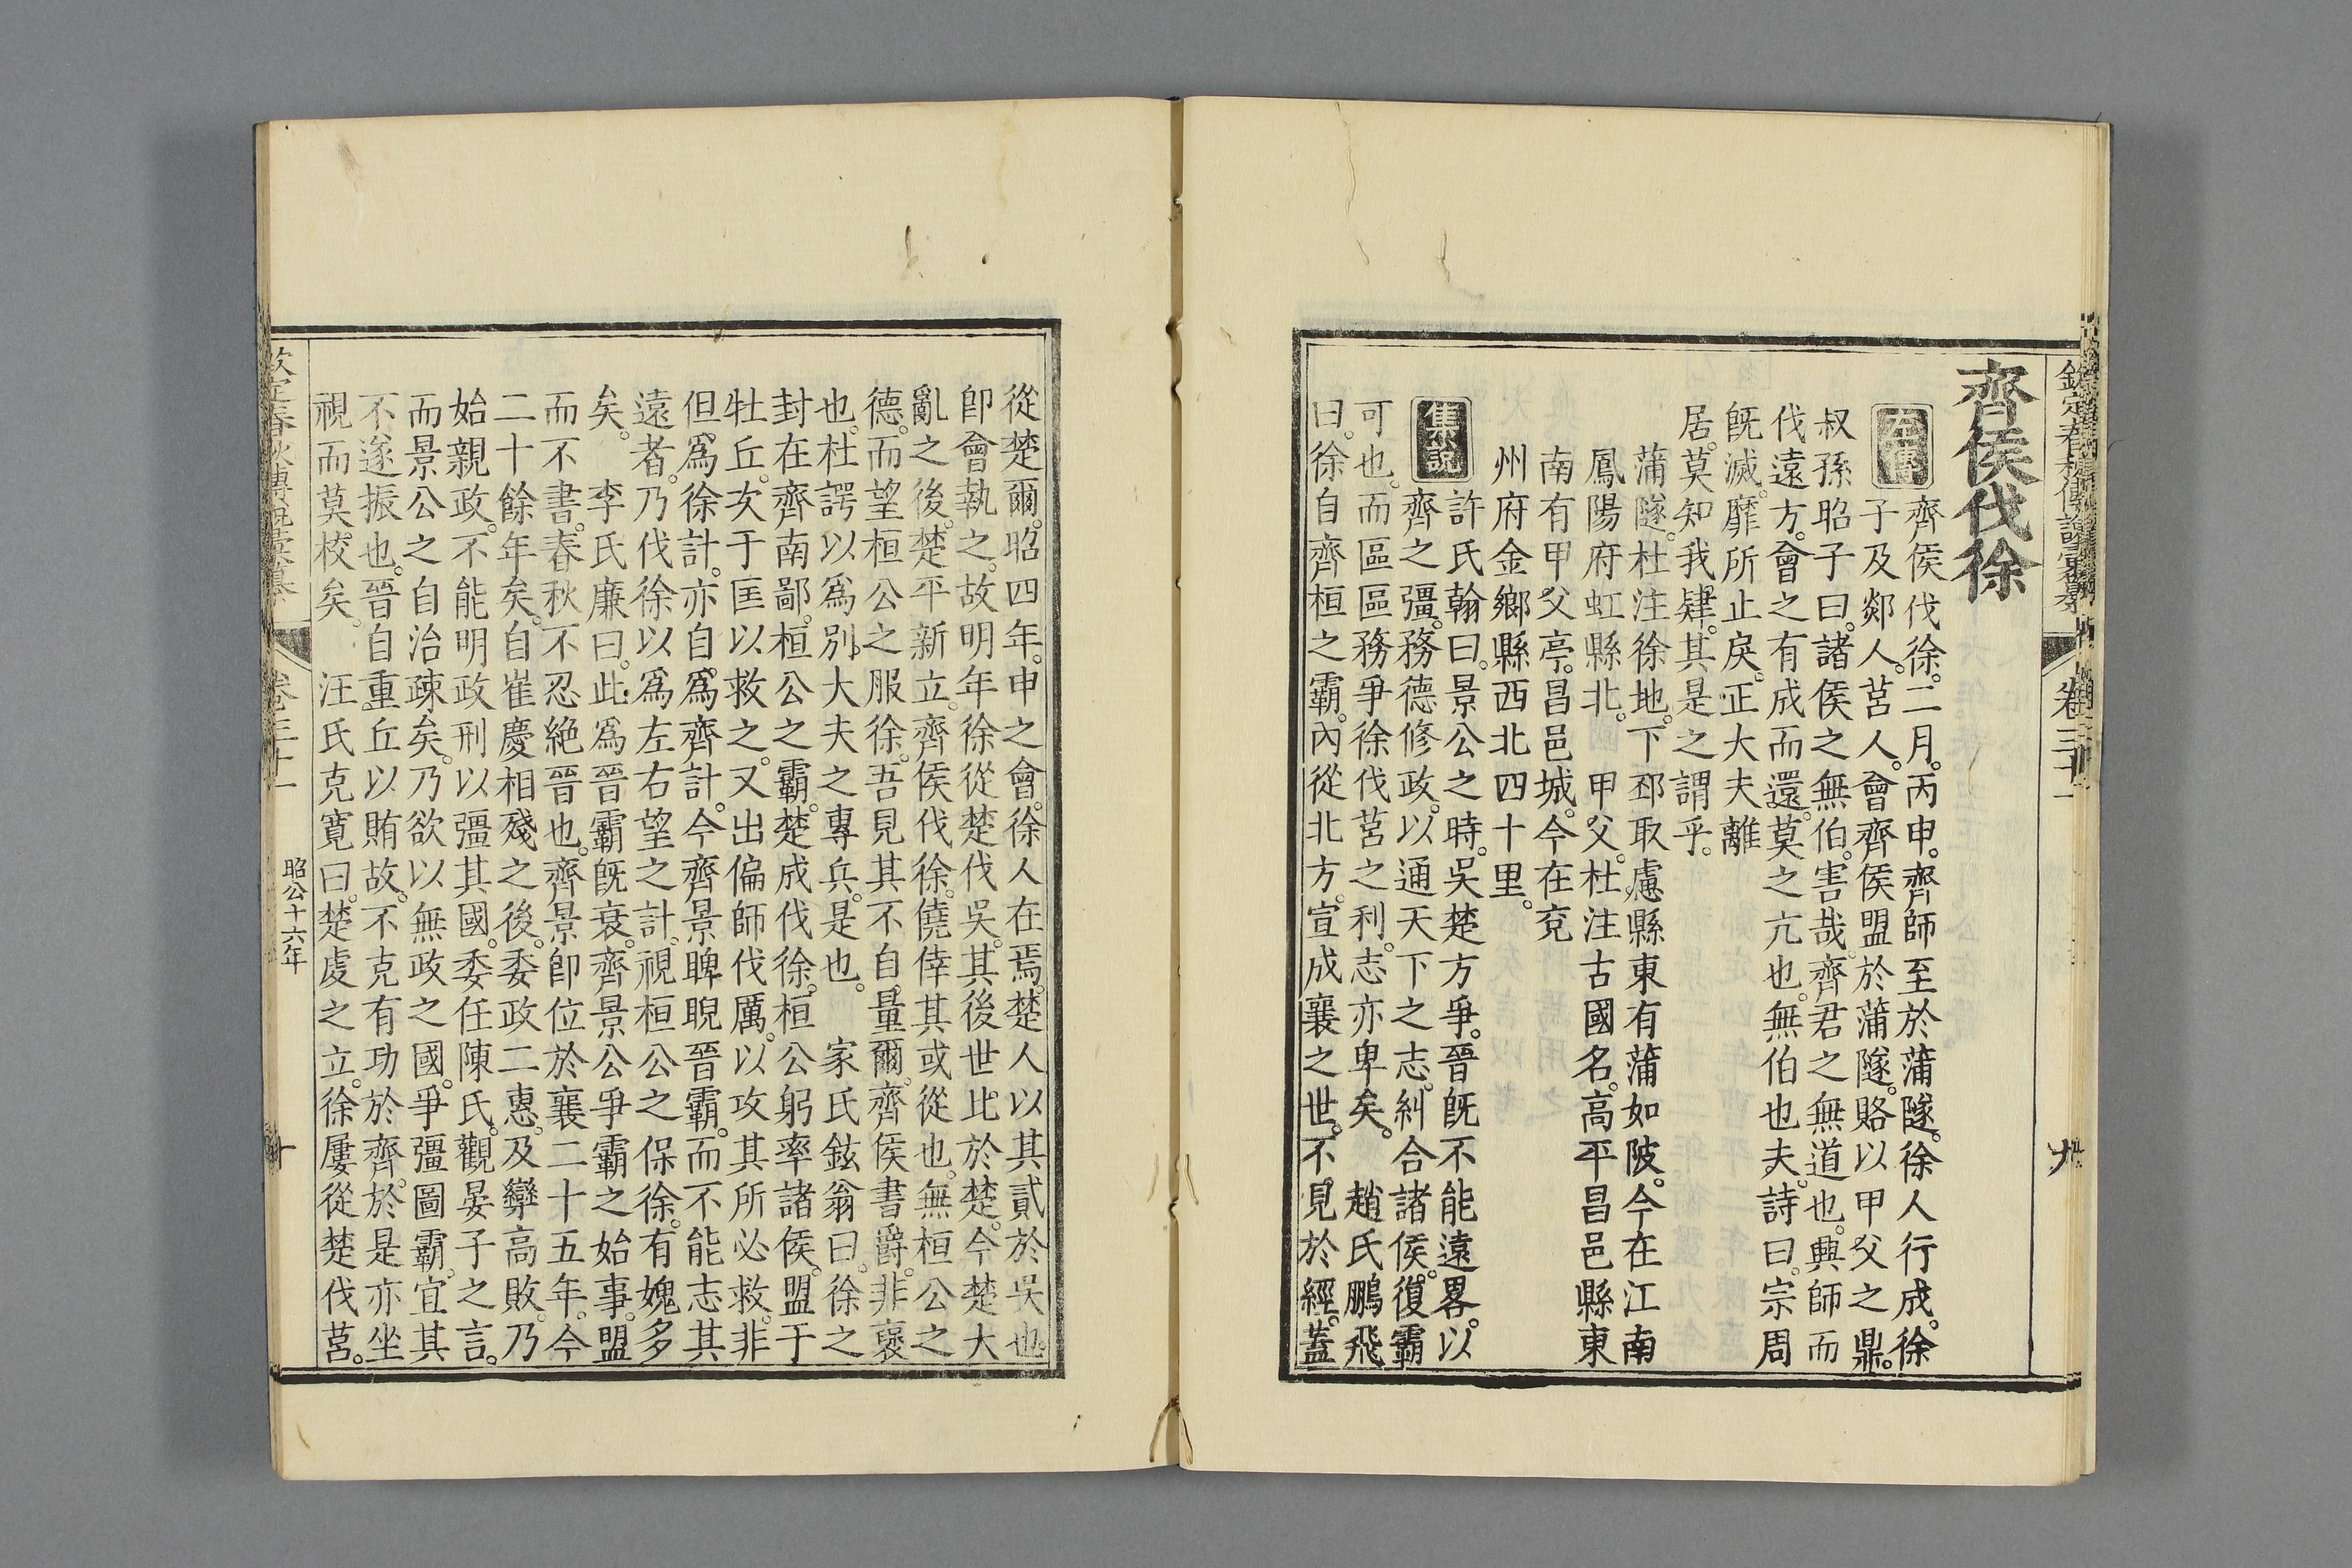 齊侯伐徐
左傳
齊侯伐徐。二月。丙申。齊師至於蒲隧。徐人行成。徐
子及郯人。莒人。會齊侯盟於蒲隧。賂以甲父之鼎。
叔孫昭子曰。諸侯之無伯。害哉。齊君之無道也。興師而
伐遠方。會之有成而還。莫之亢也。無伯也夫。詩曰。宗周
旣滅。靡所止戾。正大夫離
居。莫知我肄。其是之謂乎。
蒲隧。杜注徐地。下邳取慮縣東有蒲如陂。今在江南
鳳陽府虹縣北。 甲父。杜注古國名。高平昌邑縣東
南有甲父亭。昌邑城。今在兗
州府金鄉縣西北四十里。
集說
許氏翰曰。景公之時。吳楚方爭。晉旣不能遠畧。以
齊之彊。務德修政。以通天下之志。糾合諸侯。復霸
可也。而區區務爭徐伐莒之利。志亦卑矣。 趙氏鵬飛
曰。徐自齊桓之霸。內從北方。宣成襄之世。不見於經。蓋
卷三十一
九
從楚爾。昭四年。申之會。徐人在焉。楚人以其貳於吳也。
卽會執之。故明年徐從楚伐吳。其後世比於楚。今楚大
亂之後。楚平新立。齊侯伐徐。僥倖其或從也。無桓公之
德。而望桓公之服徐。吾見其不自量爾。齊侯書爵。非襃
也。杜諤以爲別大夫之專兵。是也。 家氏鉉翁曰。徐之
封在齊南鄙。桓公之霸。楚成伐徐。桓公躬率諸侯。盟于
牡丘。次于匡以救之。又出偏師伐厲。以攻其所必救。非
但爲徐計。亦自爲齊計。今齊景睥睨晉霸。而不能志其
遠者。乃伐徐以爲左右望之計。視桓公之保徐。有媿多
矣。 李氏廉曰。此爲晉霸旣衰。齊景公爭霸之始事。盟
而不書。春秋不忍絕晉也。齊景卽位於襄二十五年。今
二十餘年矣。自崔慶相殘之後。委政二惠。及欒高敗。乃
始親政。不能明政刑以彊其國。委任陳氏。觀晏子之言。
而景公之自治疎矣。乃欲以無政之國。爭彊圖霸。宜其
不遂振也。晉自重丘以賄故。不克有功於齊。於是亦坐
視而莫校矣。 汪氏克寬曰。楚虔之立。徐屢從楚伐莒。
欽定春秋傳說彙纂
卷三十一
昭公十六年
十